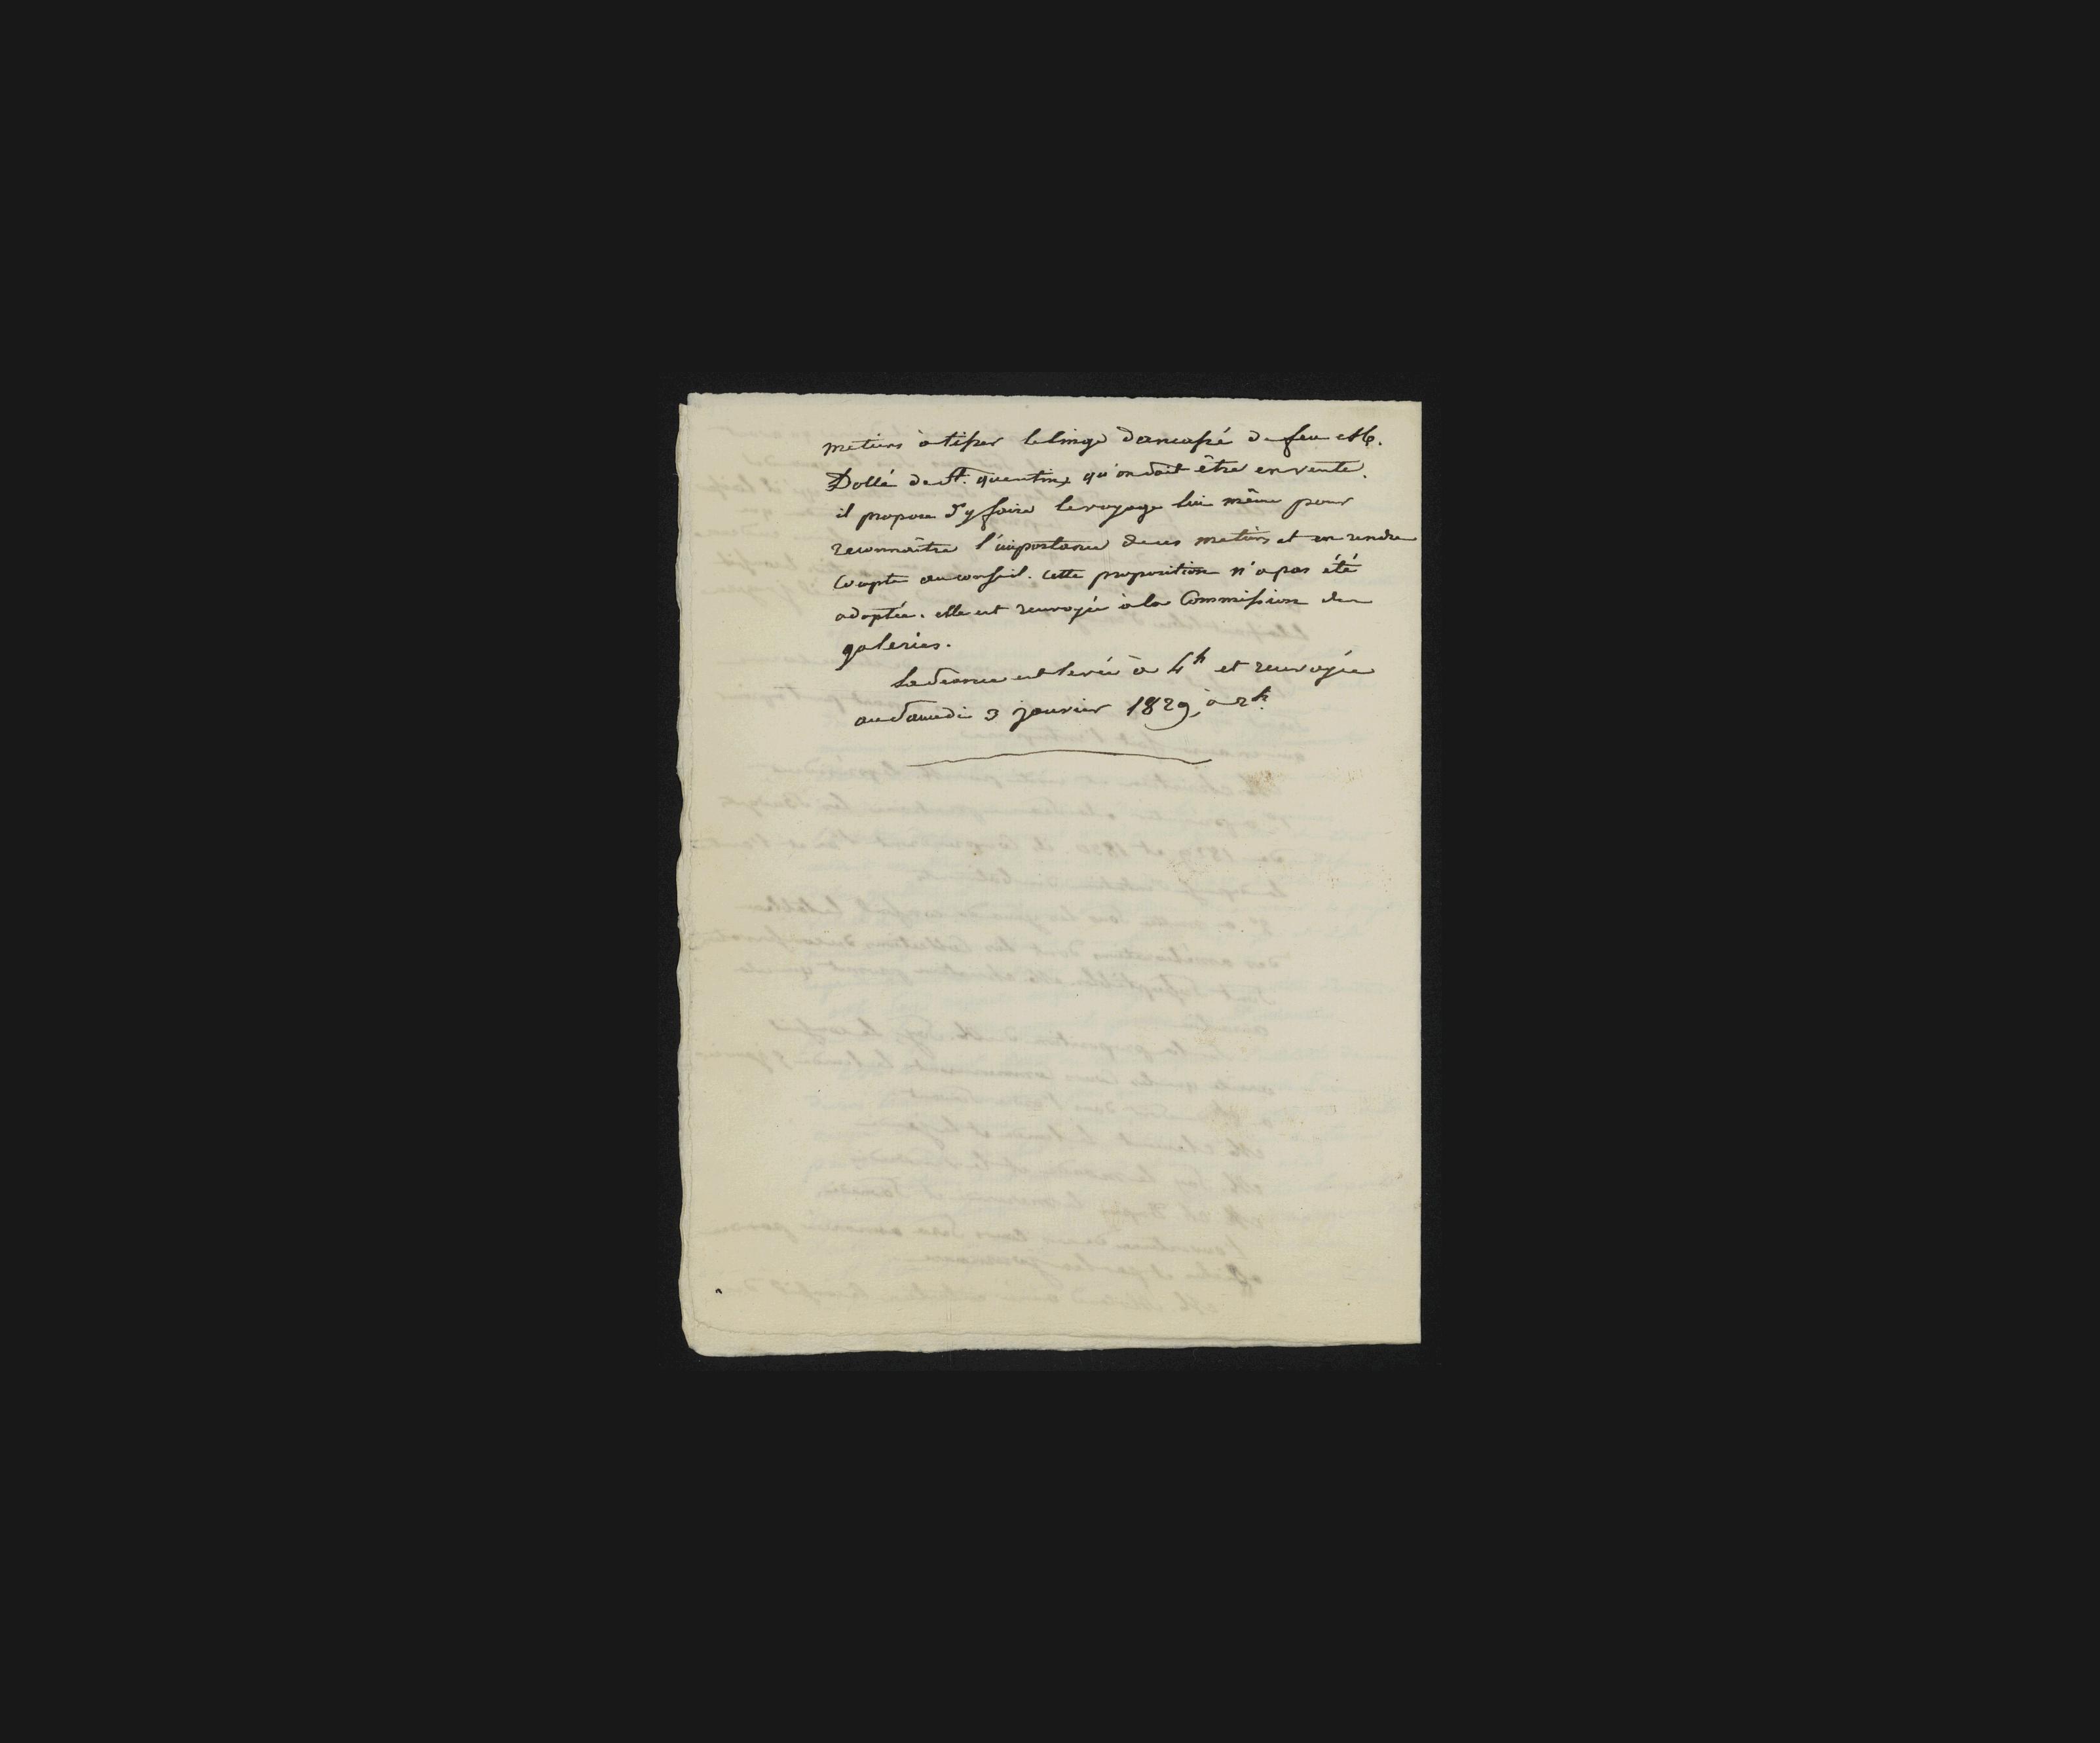 metiers à tisser le linge damassé de feu M.
Dollé de St. quentin, qu'on dit être en vente.
il propose d'y faire le voyage lui même pour
reconnaître l'importance de ces metiers et en rendre
compte au conseil. cette proposition n'a pas été
adoptée. elle est renvoyée à la Commission des
galeries.
La séance est levée à 4h et renvoyée
au Samedi 3 janvier 1829, à 2h.